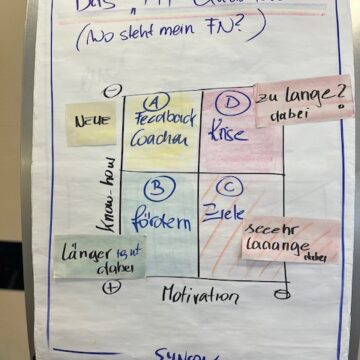 Das
(Wo steht mein FN?)
NEUE
A
Feedback
Coachen
D
Krise
zu lange?
dabei
Know-how
B
fördern
C
Ziele
Länger
dabei
seeehr
laaange dabei
Motivation